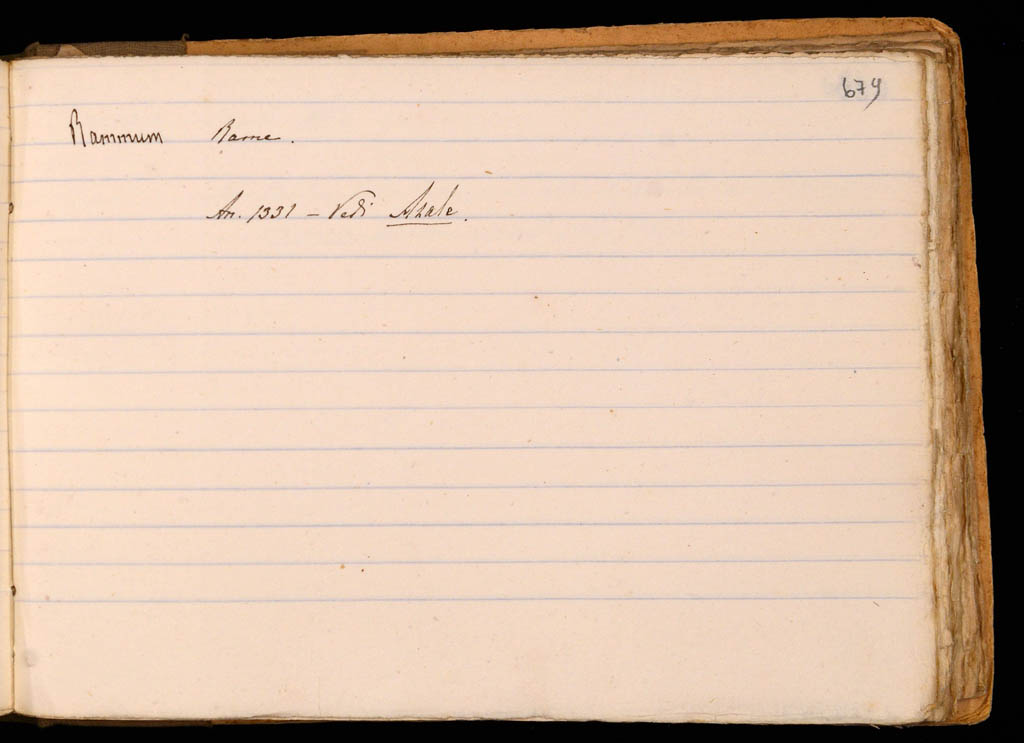 679
Rammum Rame.
An. 1331 – Vedi Azale.